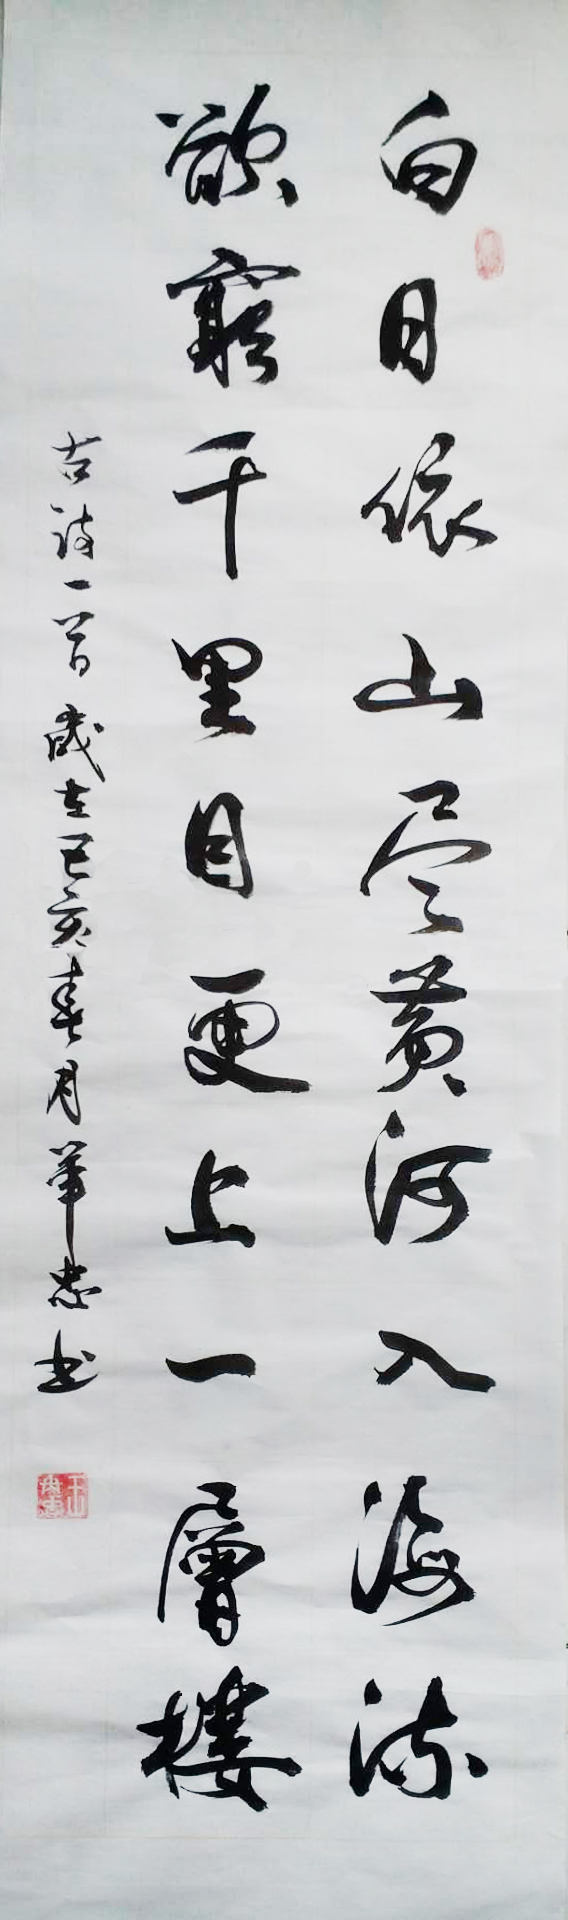 白日依山尽黄河入海流
欲穷千里目更上一層樓
古诗一首歲在己亥春月華忠书